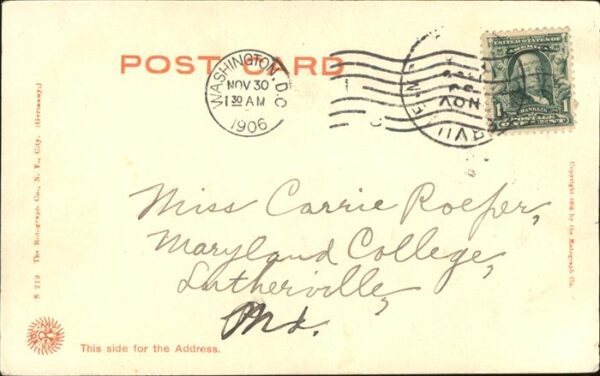 POST CARD
WASHINGTON, D.C.
NOV 30
1 30 AM
1906
UNITED STATES OF AMERICA
FRANKLIN
1 1
POSTAGE
ONE CENT
NOV
Miss Carrie Roefer,
Maryland College,
Lutherville,
Md.
This side for the Address.
S 219 The Rotograph Co., N. Y. City. (Germany.)
Copyright by the Rotograph Co.